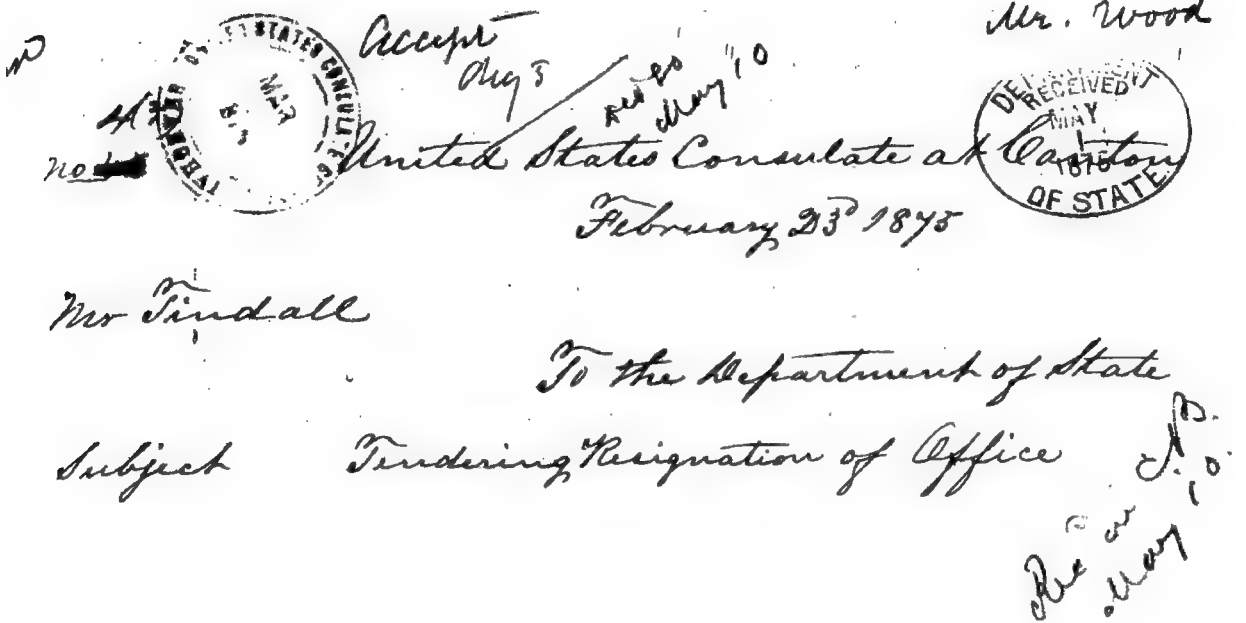 Mr. Wood
Accept
Aug 3
May 10
UNITED STATES CONSULATE
MAR
DEPARTMENT
RECEIVED
MAY
1
1875
OF STATE
No
United States Consulate at Canton
February 23d 1875
Mr Tindall
To the Department of State
Subject Tendering Resignation of Office
Rec
May 10.